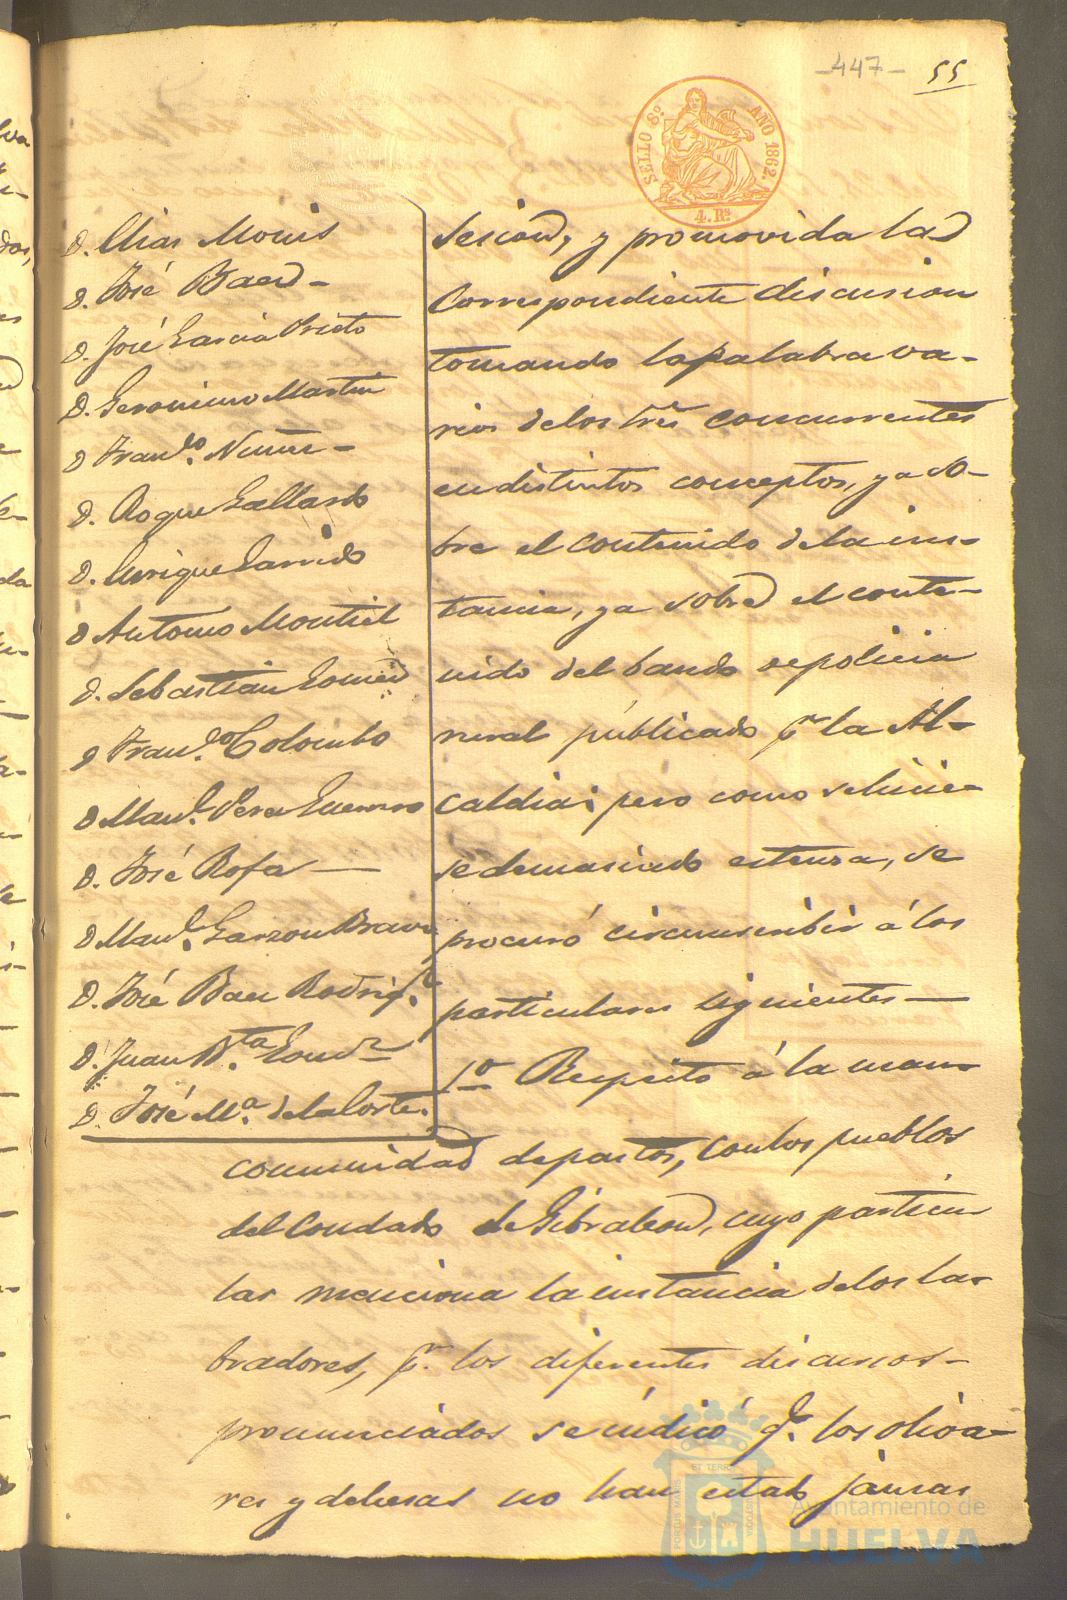 -447- 55
SELLO 8º AÑO 1862.
4. Rs
D. Elias Monis
D. José Baez -
D. José Garcia Prieto
D. Geronimo Martin
D Franco. Nuñez -
D. Roque Gallardo
D. Enrique Garrido
D Antonio Montiel
D. Sebastian Gomez
D Franco. Colombo
D Manl. Perez Guerrero
D. José Rofa
D Manl. Garzon Bravo
D. José Baez Rodrigz.
D. Juan Bta.
D. José Ma. de la Corte.
sesion, y promovida la
correspondiente discusion
tomando la palabra va-
rios de los Sres concurrentes
en distintos conceptos, ya so-
bre el contenido de la ins-
tancia, ya sobre el conte-
nido del bando de policia
rural publicado pr la Al-
caldia; pero como se hicie-
se demasiado estensa, se
procuró circunscribir á los
particulares siguientes —
1º Respecto á la man-
comunidad de pastos, con los pueblos
del Condado de Gibraleon, cuyo particu
lar menciona la instancia de los la-
bradores, pr. los diferentes discursos-
pronunciados se indicó qe. los oliva-
res y dehesas no han estado jamas
PORTUS MARIS ET TERRAE CUSTODIA
Ayuntamiento de
HUELVA